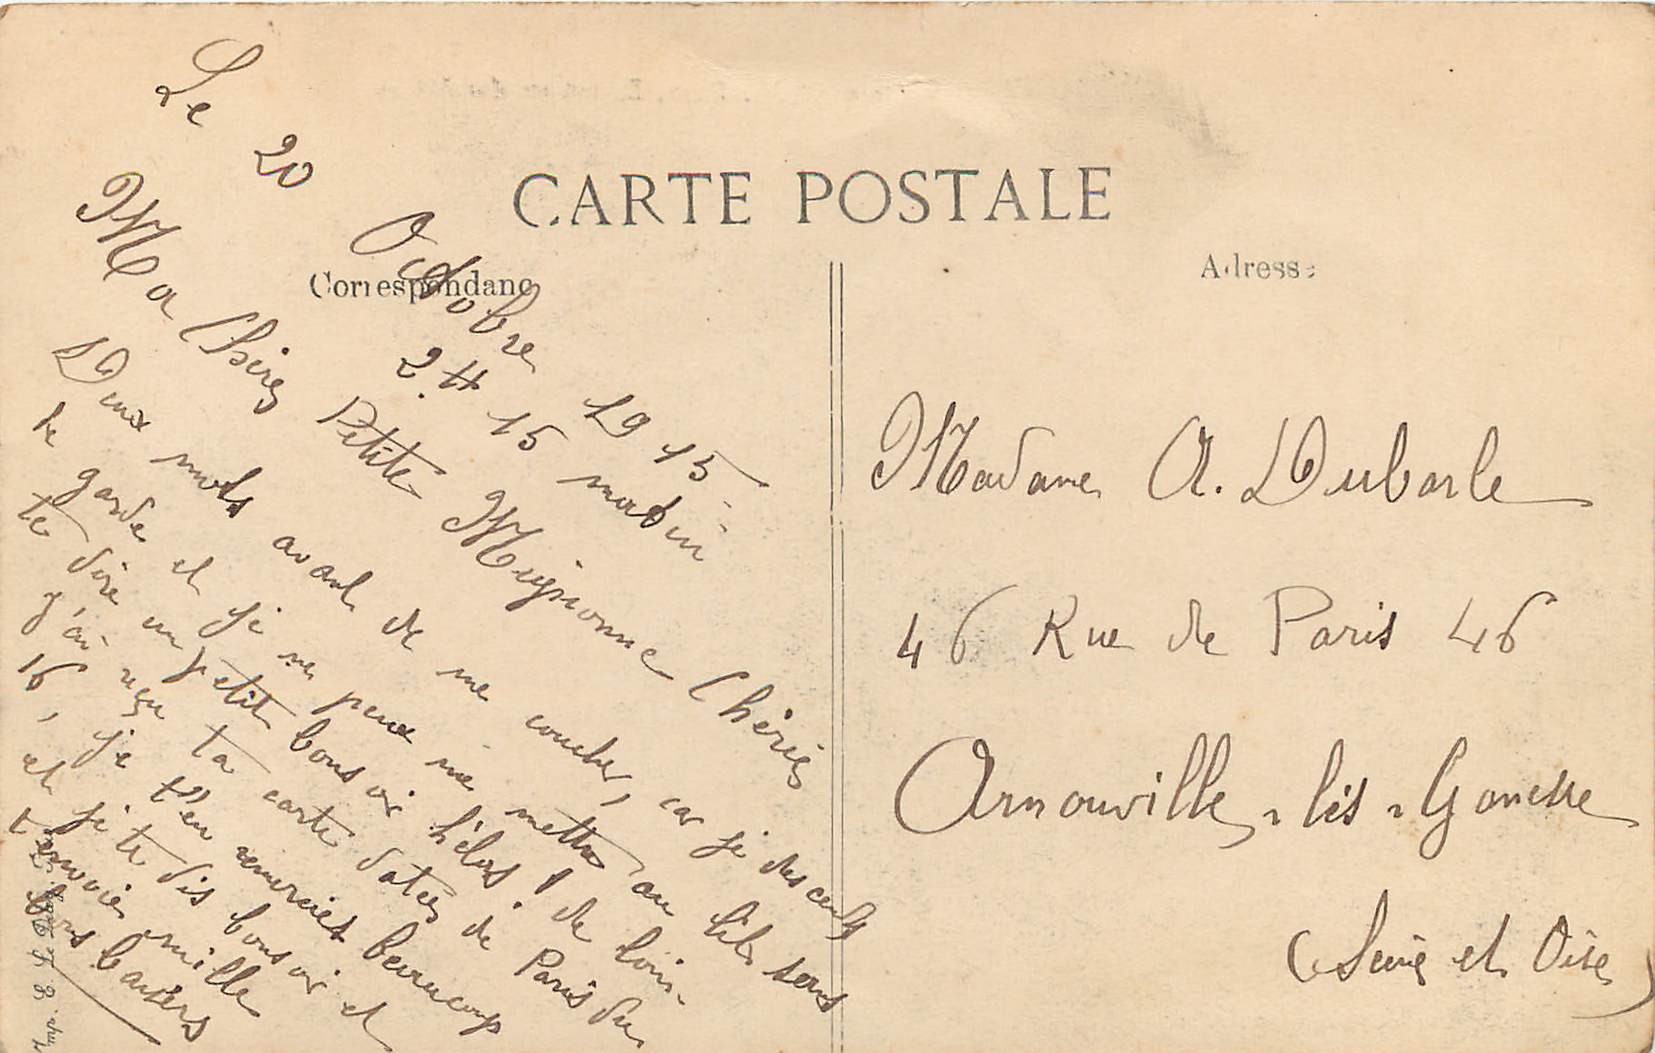 CARTE POSTALE
Correspondance
Adresse
Le 20 Octobre 1915
2.H 15 matin
Ma Chère Petite Mignonne Chérie
Deux mots avant de me coucher, car je descends
de garde et je ne peux me mettre au lit sans
te dire un petit bonsoir hélas ! de loin.
J'ai reçu ta carte datée de Paris du
16, je t'en remercie beaucoup
et je te dis bonsoir et
t'envoie mille
bons baisers
Madame A. Dubarle
46 Rue de Paris 46
Arnouville-lès-Gonesse
(Seine et Oise)